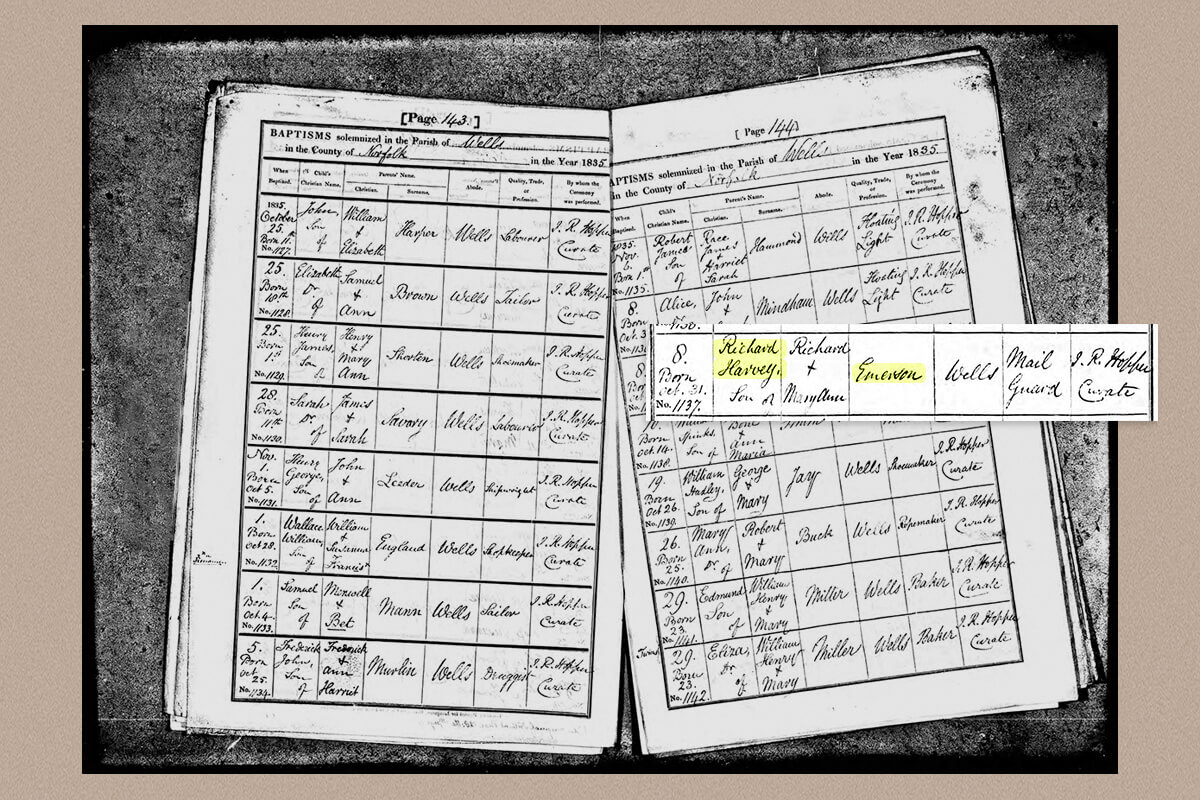 [Page 143.]
BAPTISMS solemnized in the Parish of Wells
in the County of Norfolk in the Year 1835
When Baptized. Child's Christian Name. Parent's Name. Christian. Surname. Abode. Quality, Trade, or Profession. By whom the Ceremony was performed.
1835. October 25. Born 11. No. 1127. John, Son of William & Elizabeth Harper Wells Labourer J. R. Hopper Curate
25. Born 18th No. 1128. Elizabeth Dr. of Samuel & Ann Brown Wells Tailor J. R. Hopper Curate
25. Born 1st No. 1129. Henry James, Son of Henry & Mary Ann Shorten Wells Shoemaker J. R. Hopper Curate
28. Born 11th No. 1130. Sarah Dr. of James & Sarah Savory Wells Labourer J. R. Hopper Curate
Nov. 1. Born Oct 5. No. 1131. Henry George, Son of John & Ann Leeder Wells Shipwright J. R. Hopper Curate
1. Born Oct 28. No. 1132. Wallace William, Son of William & Susanna Francis England Wells Shopkeeper J. R. Hopper Curate
1. Born Oct 4. No. 1133. Samuel Son of & Bet Mann Wells Sailor J. R. Hopper Curate
5. Born Oct. 25. No. 1134. Frederick John, Son of Frederick & Ann Harriet Murlin Wells Druggist J. R. Hopper Curate
[ Page 144 ]
APTISMS solemnized in the Parish of Wells
in the County of Norfolk in the Year 1835.
When Baptized. Child's Christian Name. Parent's Name. Christian. Surname. Abode. Quality, Trade, or Profession. By whom the Ceremony was performed.
1835. Nov. 6. Born 1st No. 1135. Robert James Son of Race James & Harriet Sarah Hammond Wells Floating Light J. R. Hopper Curate
8. Born Oct. 3 Alice, John & Mindham Wells Floating Light J. R. Hopper Curate
8. Born Oct. 31. No. 1137. Richard Harvey. Son of Richard & Mary Ann Emerson Wells Mail Guard J. R. Hopper Curate
Born Oct. 14. No. 1138. Spinks, Son of Ann Maria J. R. Hopper Curate
19. Born Oct 26. No. 1139. William Hadley, Son of George & Mary Jay Wells Shoemaker J. R. Hopper Curate
26. Born 25. No. 1140. Mary Ann, Dr. of Robert & Mary Buck Wells Ropemaker J. R. Hopper Curate
29. Born 23. No. 1141. Edmund Son of William Henry & Mary Miller Wells Baker J. R. Hopper Curate
29. Born 23. No. 1142. Eliza, Dr. of William Henry & Mary Miller Wells Baker J. R. Hopper Curate